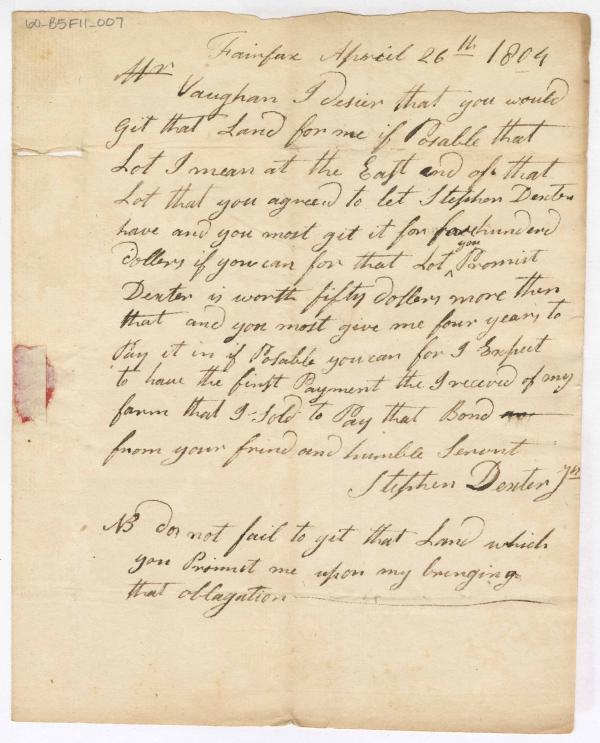 60-B5F11-007
Fairfax April 26th 1804
Mr
Vaughan I desier that you would
git that Land for me if Posable that
Lot I mean at the East end of that
Lot that you agreed to let Stephen Dexter
have and you most git it for hunderd
dollers if you can for that Lot you Promist
Dexter is worth fifty dollers more then
that and you most give me four years to
Pay it in if Posable you can for I Expect
to have the first Payment the I receved of my
farm that I Sold to Pay that Bond
from your frind and humble Servnt
Stephen Dexter Jn
NB do not fail to git that Land which
you Promist me upon my bringing
that oblagation